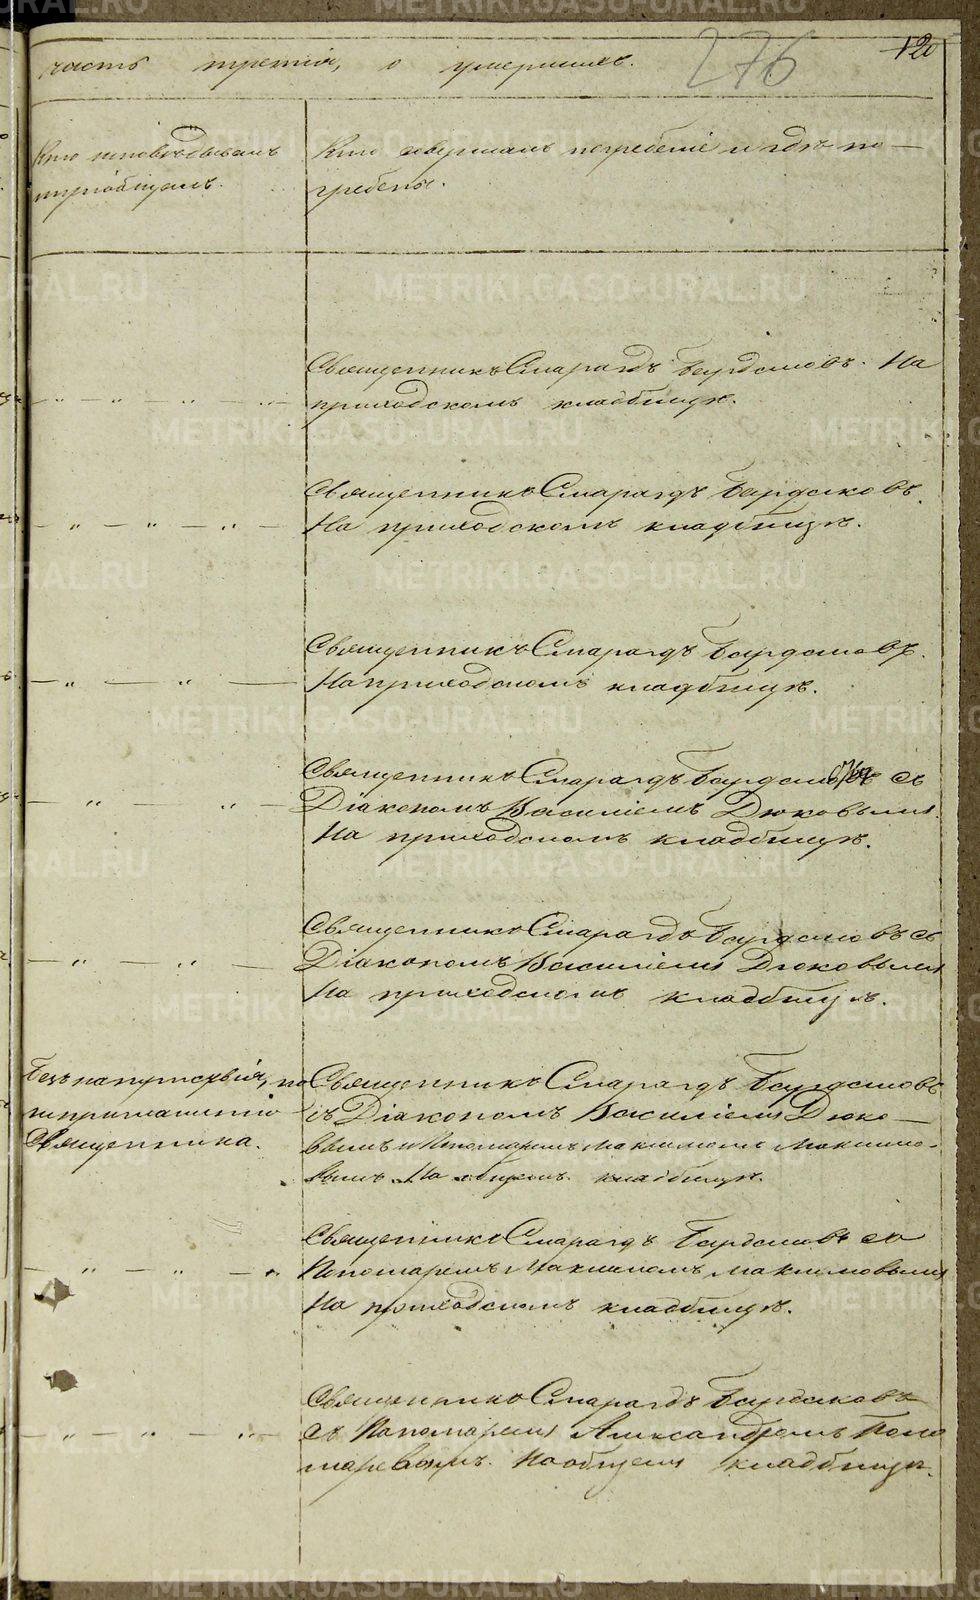 часть третія, о умершихъ.
276
120
Кто исповѣдывалъ
и пріобщалъ.
Кто совершалъ погребеніе и гдѣ по-
гребены.
Священникъ Смарагдъ Бурдаковъ. На
приходскомъ кладбищѣ.
Священникъ Смарагдъ Бурдаковъ.
На приходскомъ кладбищѣ.
Священникъ Смарагдъ Бурдаковъ.
На приходскомъ кладбищѣ.
Священникъ Смарагдъ Бурдаковъ съ
Діакономъ Василіемъ Дюковымъ.
На приходскомъ кладбищѣ.
Священникъ Смарагдъ Бурдаковъ съ
Діакономъ Василіемъ Дюковымъ
На приходскомъ кладбищѣ.
Безъ напутствія, по
неприглашенію
Священника.
Священникъ Смарагдъ Бурдаковъ
съ Діакономъ Василіемъ Дюко-
вымъ и Пономаремъ Максимомъ Максимо-
вымъ. На общемъ кладбищѣ.
Священникъ Смарагдъ Бурдаковъ со
Пономаремъ Максимомъ Максимовымъ
На приходскомъ кладбищѣ.
Священникъ Смарагдъ Бурдаковъ
съ Пономаремъ Александромъ Поно
маревымъ. На общемъ кладбищѣ.
METRIKI.GASO-URAL.RU